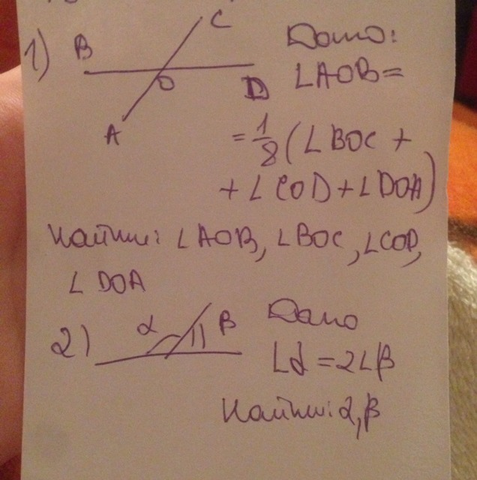 1) B C O D A
Дано:
∠AOB=
=1/8(∠BOC+
+∠COD+∠DOA)
Найти: ∠AOB, ∠BOC, ∠COD,
∠DOA
2) α β
Дано
∠α=2∠β
Найти: α, β